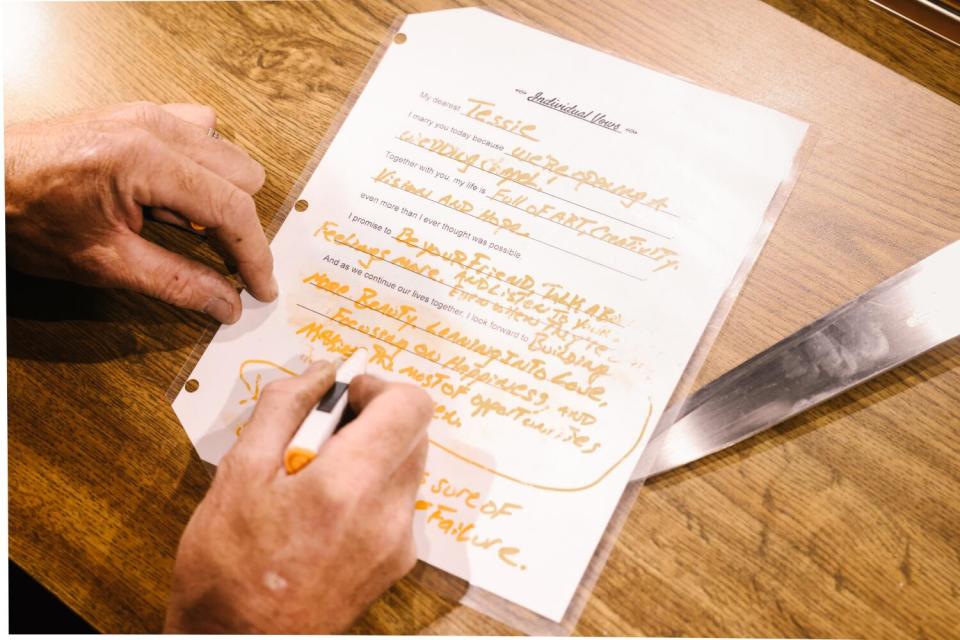 Individual Vows
My dearest, Tessie
I marry you today because we're opening A
wedding chapel.
Together with you, my life is Full of ART, Creativity,
Vision AND Hope.
even more than I ever thought was possible.
I promise to Be your Friend, Talk ABout
Feelings more. AND Listen To Your
And as we continue our lives together, I look forward to Building
More Beauty, Leaning Into Love,
Focusing on Happiness, AND
Making The most of opportunities
sure of
Failure.